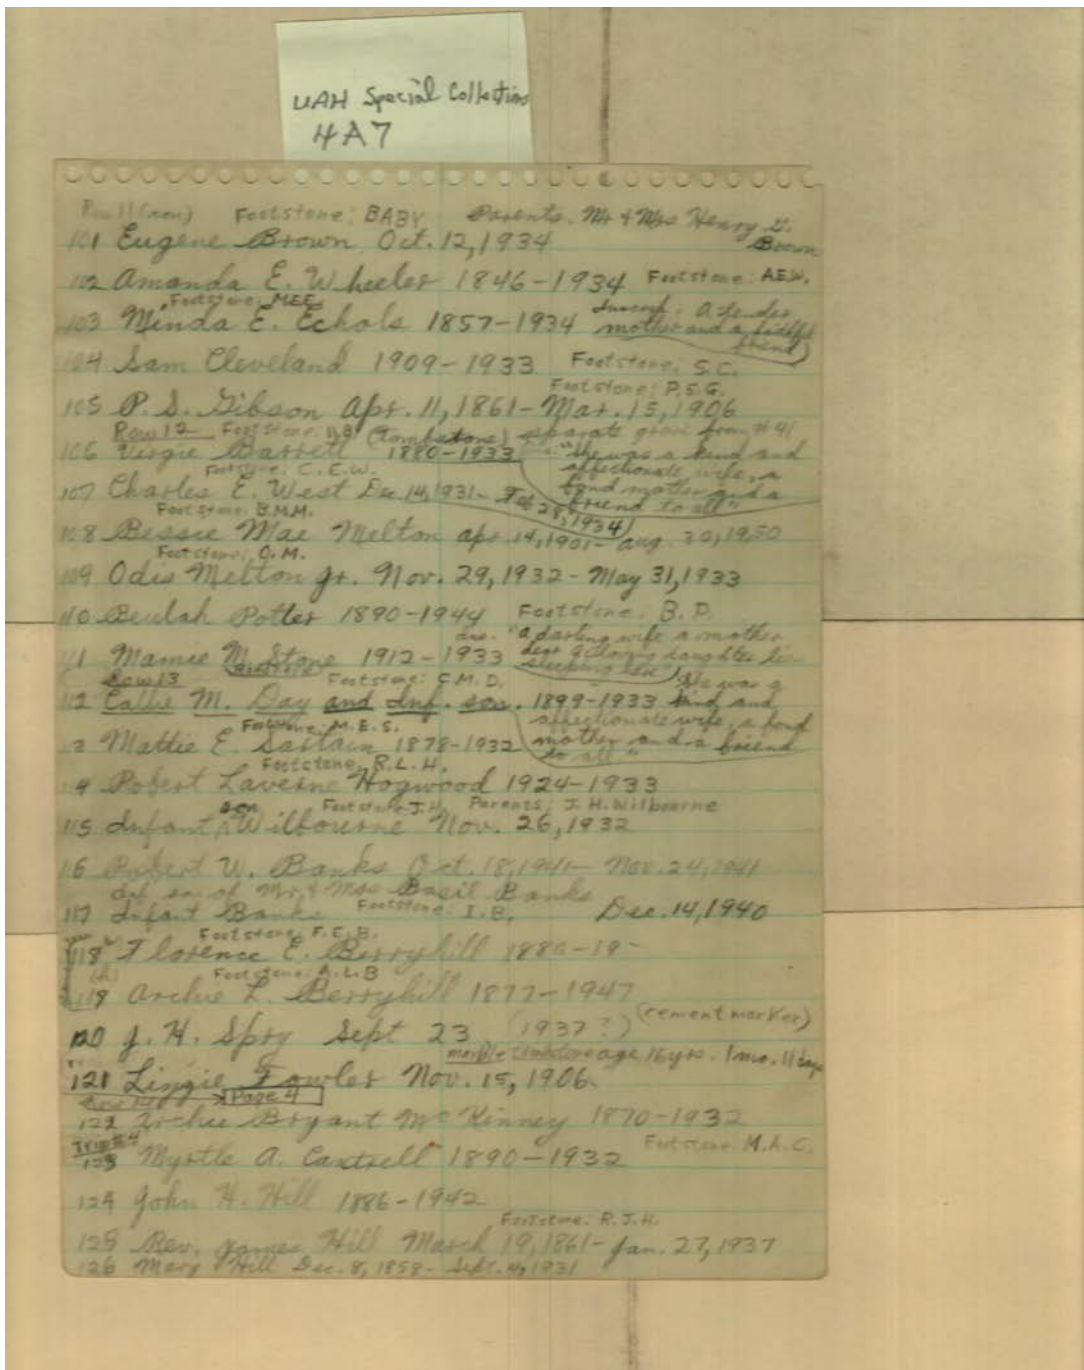 UAH Special Collections
4A7
Row 11 (con) Footstone: BABY Parents. Mr & Mrs Henry G. Brown
101 Eugene Brown Oct. 12, 1934
102 Amanda E. Wheeler 1846-1934 Footstone: A.E.W.
Footstone: M.E.E.
103 Minda E. Echols 1857-1934 Inscrip: A tender mother and a faithful friend)
104 Sam Cleveland 1909-1933 Footstone: S.C.
Footstone: P.S.G.
105 P. S. Gibson Apr. 11, 1861-Mar. 15, 1906
Row 12 Footstone: V.B (Tombstone) separate grave from #41
106 Virgie Barrett 1880-1933 "She was a kind and affectionate wife, a fond mother and a friend to all"
Footstone: C.E.W.
107 Charles E. West Dec. 14, 1931- Feb 28, 1934)
Footstone: B.M.M.
108 Bessie Mae Melton Apr. 14, 1901- Aug. 30, 1950
Footstone: O.M.
109 Odis Melton Jr. Nov. 29, 1932 - May 31, 1933
110 Beulah Potter 1890-1944 Footstone: B.P.
111 Mamie M. Stone 1912-1933 ins. "A darling wife a mother dear a loving daughter lies sleeping here"
Row 13 Footstone: C.M.D.
112 Callie M. Day and Inf. son. 1899-1933 "She was a kind and affectionate wife, a fond mother and a friend to all"
Footstone: M.E.S.
3 Mattie E. Sartain 1878-1932
Footstone, R.L.H.
114 Robert Laverne Hogwood 1924-1933
Footstone J.H. Parents: J.H. Wilbourne
115 Infant son Wilbourne Nov. 26, 1932
116 Robert W. Banks Oct. 18, 1941- Nov. 24, 1941
Inf son of Mr & Mrs Basil Banks
117 Infant Banks Footstone: I.B. Dec. 14, 1940
Footstone: F.E.B.
118 Florence E. Berryhill 1880-19-
(h) Footstone: A.L.B
119 Archie L. Berryhill 1877-1947
120 J. H. Spry Sept 23 (1937?) (cement marker)
marble tombstone age 16 yrs. 1 mo. 11 days
121 Lizzie Fowler Nov. 15, 1906
Row 14 Page 4
122 Archie Bryant McKinney 1870-1932
Trip #4
123 Myrtle A. Cantrell 1890-1932 Footstone: M.A.C.
124 John H. Hill 1886-1942
Footstone: R.J.H.
125 Rev. James Hill March 19, 1861-Jan. 27, 1937
126 Mary Hill Dec. 8, 1858- Sept. 4, 1931